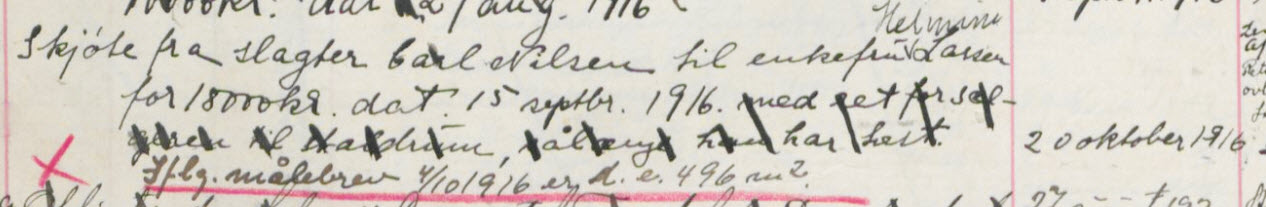 10000 kr. dat. 2/aug. 1916
Helmine
Skjøte fra slagter Carl Nilsen til enkefru Larsen
for 18000 kr. dat. 15 septbr. 1916. med ret for sæl-
geren til staldrum, sålenge han har hest.
20 oktober 1916
Iflg. målebrev 4/10 1916 er d. e. 496 m².